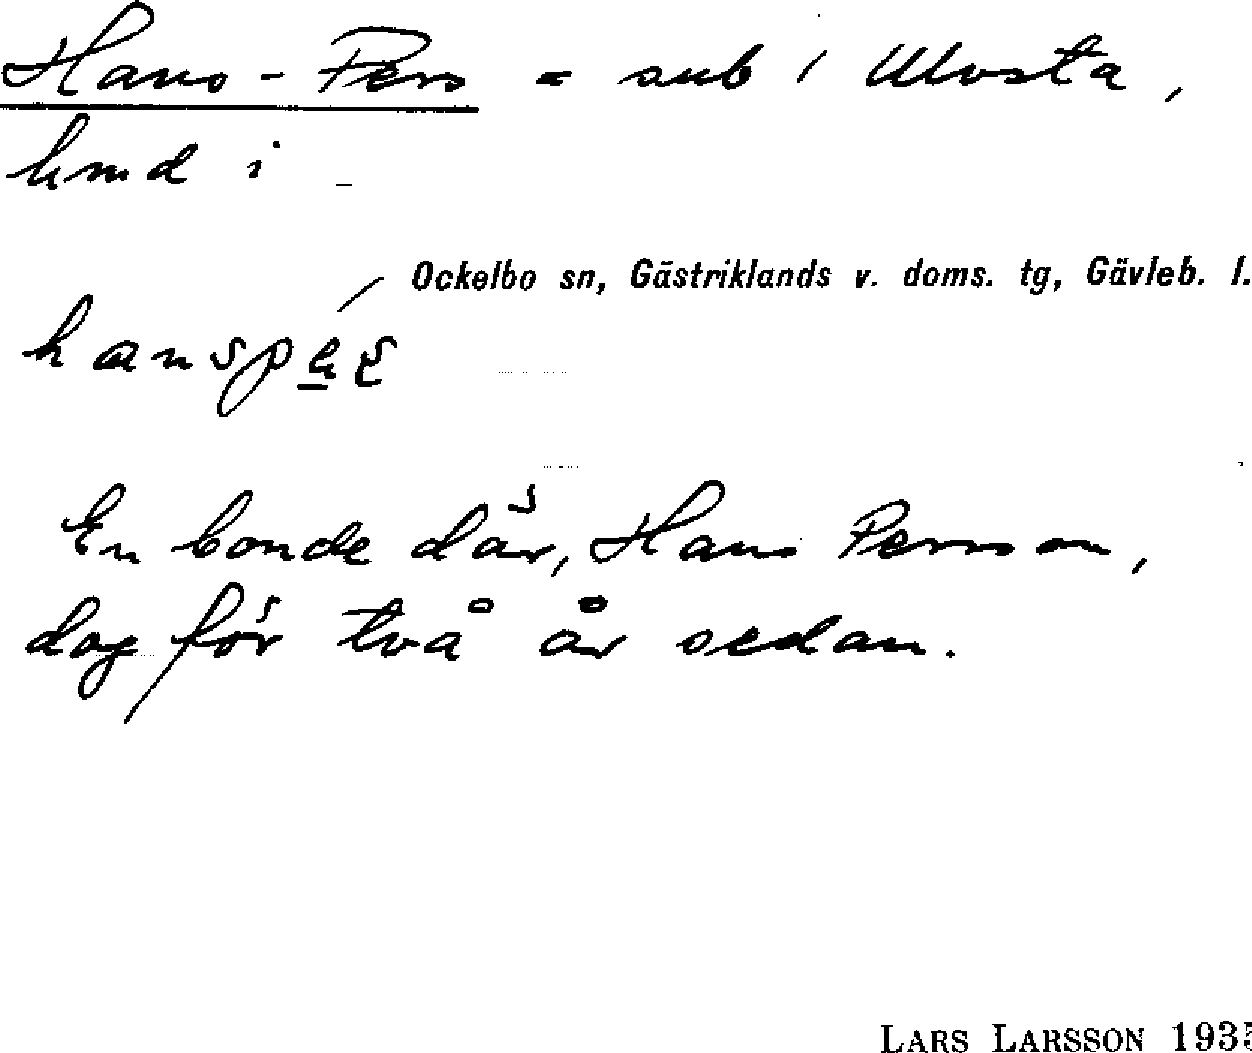 Hans-Pers = sub i Ulvsta,
hmd i
Ockelbo sn, Gästriklands v. doms. tg, Gävleb. l.
En bonde där, Hans Persson,
dog för två år sedan.
LARS LARSSON 1935